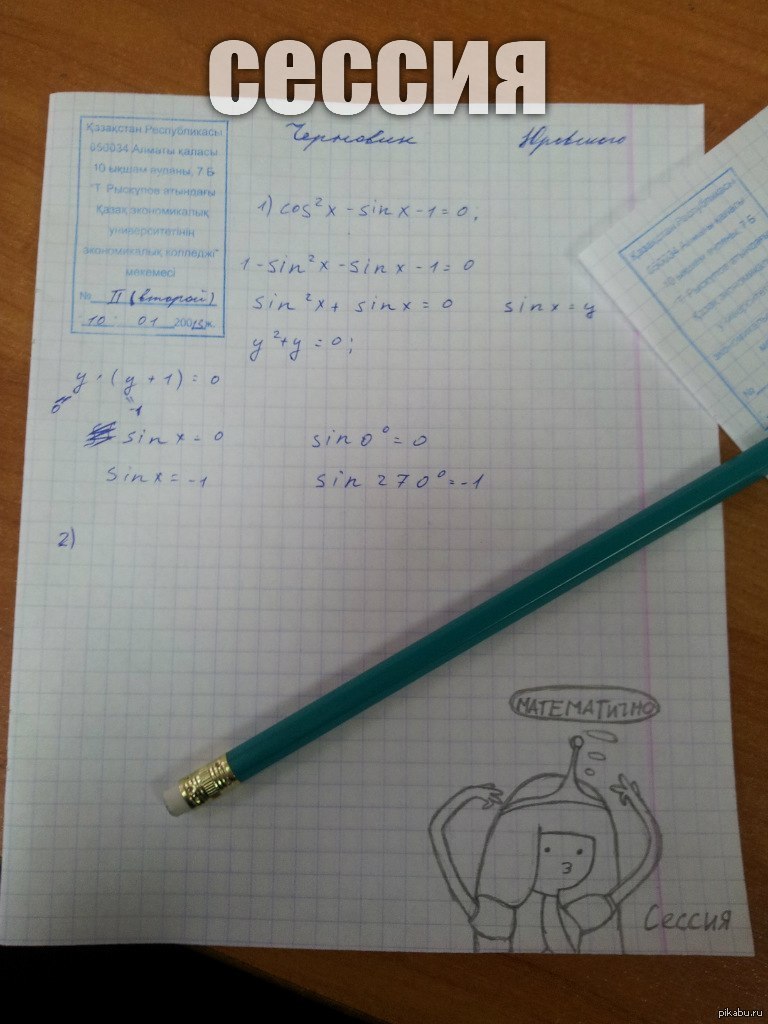 сессия
Қазақстан Республикасы
050034 Алматы қаласы
10 ықшам ауданы, 7 Б
"Т. Рысқұлов атындағы
Қазақ экономикалық
университетінің
экономикалық колледжі"
мекемесі
№ II (второй)
10 01 20013ж.
Черновик
1) cos²x - sinx - 1 = 0;
1 - sin²x - sinx - 1 = 0
sin²x + sinx = 0 sinx = y
y² + y = 0;
y · (y + 1) = 0
0 -1
sinx = 0 sin0° = 0
sinx = -1 sin270° = -1
2)
Қазақстан Республикасы
050034 Алматы қаласы
№
МАТЕМАТИЧНО
Сессия
pikabu.ru